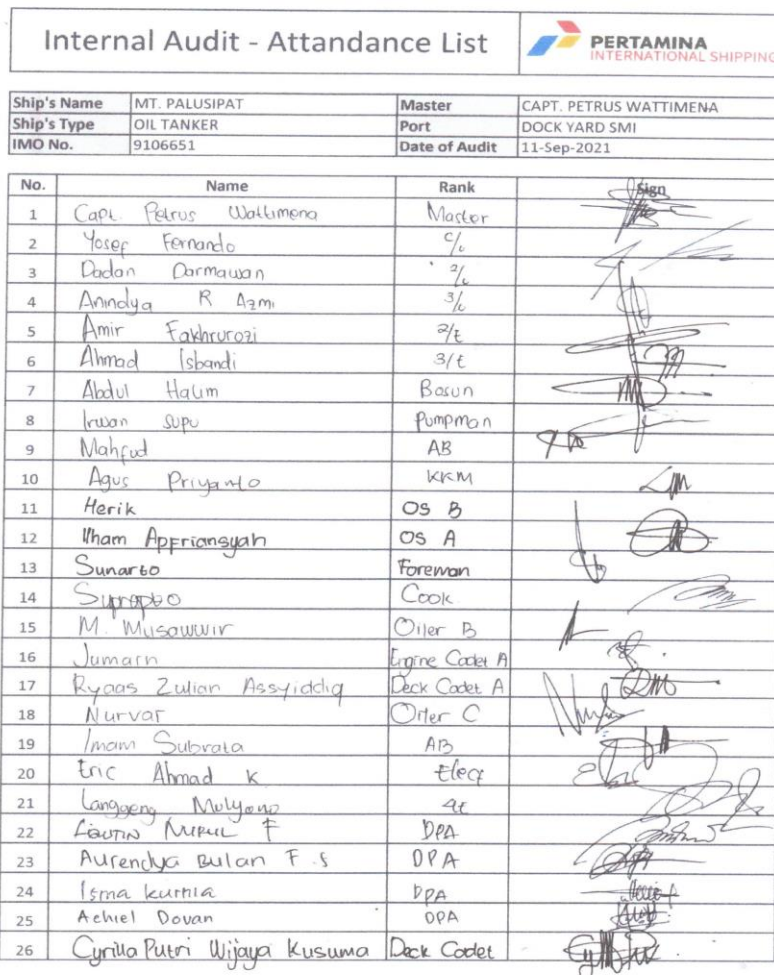 Internal Audit - Attandance List
PERTAMINA
INTERNATIONAL SHIPPING
Ship's Name MT. PALUSIPAT Master CAPT. PETRUS WATTIMENA
Ship's Type OIL TANKER Port DOCK YARD SMI
IMO No. 9106651 Date of Audit 11-Sep-2021
No. Name Rank Sign
1 Capt. Petrus Wattimena Master
2 Yosef Fernando
3 Dadan Darmawan
4 Anindya R Azmi
5 Amir Fakhrurozi 2/t
6 Ahmad Isbandi 3/t
7 Abdul Halim Bosun
8 Irwan Supu Pumpman
9 Mahfud AB
10 Agus Priyanto KKM
11 Herik OS B
12 Ilham Appriansyah OS A
13 Sunarto Foreman
14 Suprapto Cook
15 M. Musawwir Oiler B
16 Engine Cadet A
17 Ryaas Zulian Assyiddiq Deck Cadet A
18 Nurvar Oiler C
19 Imam Subrata AB
20 Eric Ahmad K Elect
21 Langgeng Mulyono 4t
22 F DPA
23 Aurendya Bulan F.S DPA
24 Isma Kurnia DPA
25 Achiel Dovan DPA
26 Cyrilla Putri Wijaya Kusuma Deck Cadet